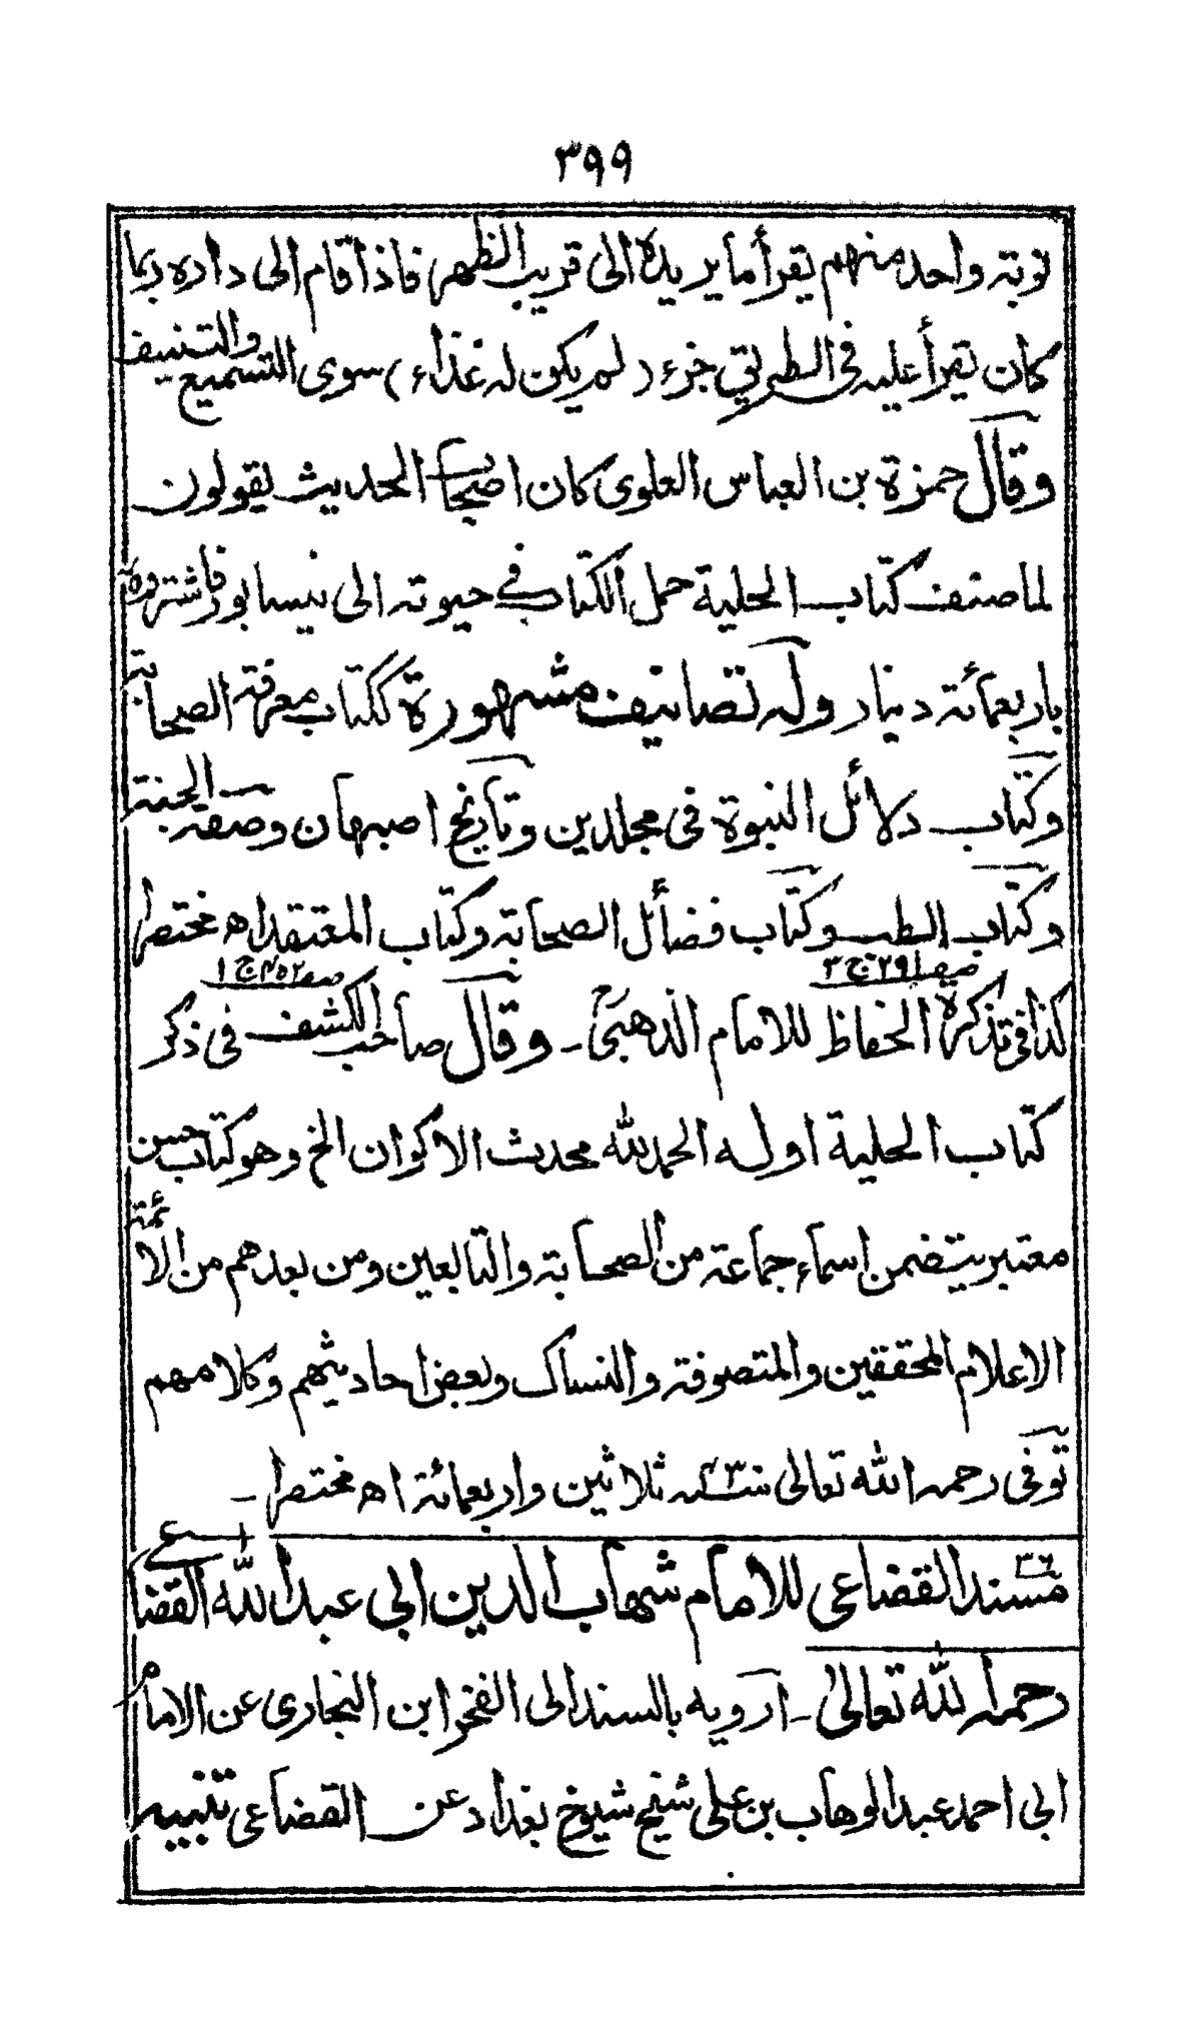 ٣٩٩
نوبة واحد منهم يقرأ ما يريده الى قريب الظهر فاذا قام الى داره ربما
كان يقرأ عليه فى الطريق جزء (لم يكن له غذاء) سوى التسميع والتصنيف
وقال حمزة بن العباس العلوى كان اصحاب الحديث يقولون
لما صنف كتاب الحلية حمل الكتاب فى حيوته الى نيسابور فاشتروه
باربعمائة دينار وله تصانيف مشهورة ككتاب معرفة الصحابة
وكتاب دلائل النبوة فى مجلدين وتاريخ اصبهان وصفة الجنة
وكتاب الطب وكتاب فضائل الصحابة وكتاب المعتقد اه مختصرا
كذا فى تذكرة الحفاظ للامام الذهبى ـ وقال صاحب الكشف فى ذكر
كتاب الحلية اوله الحمد لله محدث الاكوان الخ وهو كتاب حسن
معتبر يتضمن اسماء جماعة من الصحابة والتابعين ومن بعدهم من الائمة
الاعلام المحققين والمتصوفة والنساك وبعض احاديثهم وكلامهم
توفى رحمه الله تعالى سنة ثلاثين واربعمائة اه مختصرا ـ
٣٦ مسند القضاعى للامام شهاب الدين ابى عبد الله القضاعى
رحمه الله تعالى ـ ارويه بالسند الى الفخر ابن البخارى عن الامام
ابى احمد عبد الوهاب بن على شيخ شيوخ بغداد عن القضاعى تنبيه